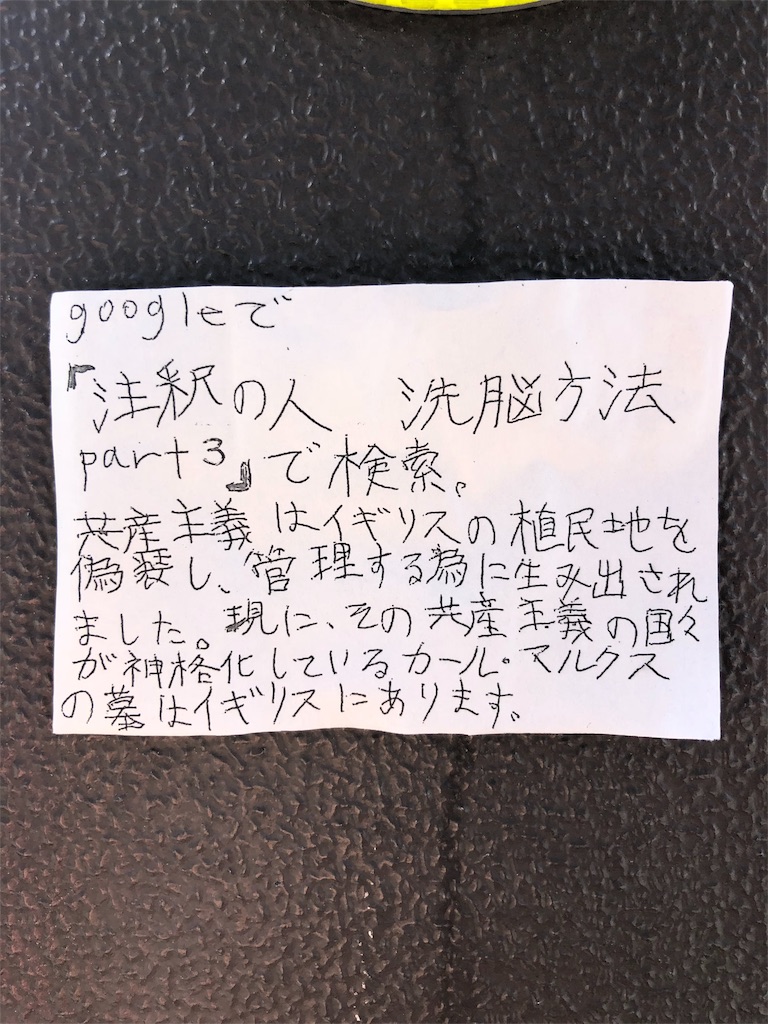 googleで
『注釈の人 洗脳方法
part3』で検索。
共産主義はイギリスの植民地を
偽装し、管理する為に生み出され
ました。現に、その共産主義の国々
が神格化しているカール・マルクス
の墓はイギリスにあります。